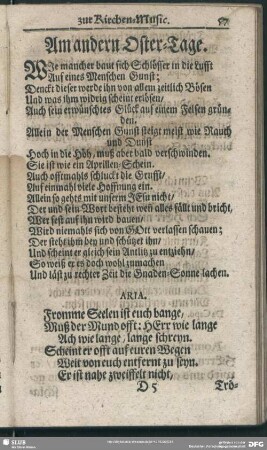 zur Kirchen-Music.
57
Am andern Oster-Tage.
WJe mancher baut sich Schlösser in die Lufft
Auf eines Menschen Gunst;
Denckt dieser werde ihn von allem zeitlich Bösen
Und was ihm widrig scheint erlösen/
Auch sein erwünschtes Glück auf einem Felsen grün-
den.
Allein der Menschen Gunst steigt meist wie Rauch
und Dunst
Hoch in die Höh, muß aber bald verschwinden.
Sie ist wie ein Aprillen-Schein.
Auch offtemahls schluckt die Grufft/
Auf einmahl viele Hoffnung ein.
Allein so gehts mit unserm JEsu nicht/
Der und sein Wort besteht weñ alles fällt und bricht,
Wer fest auf ihn wird bauen/
Wird niemahls sich von GOtt verlassen schauen;
Der steht ihm bey und schützet ihn/
Und scheint er gleich sein Antlitz zu entziehn/
So weiß er es doch wohl zu machen
Und läßt zu rechter Zeit die Gnaden-Sonne lachen.
ARIA.
Fromme Seelen ist euch bange,
Muß der Mund offt: HErr wie lange
Ach wie lange, lange schreyn.
Scheint er offt auf euren Wegen
Weit von euch entfernt zu seyn.
Er ist nahe zweiffelt nicht,
D 5
Trö-
SLUB
DFG